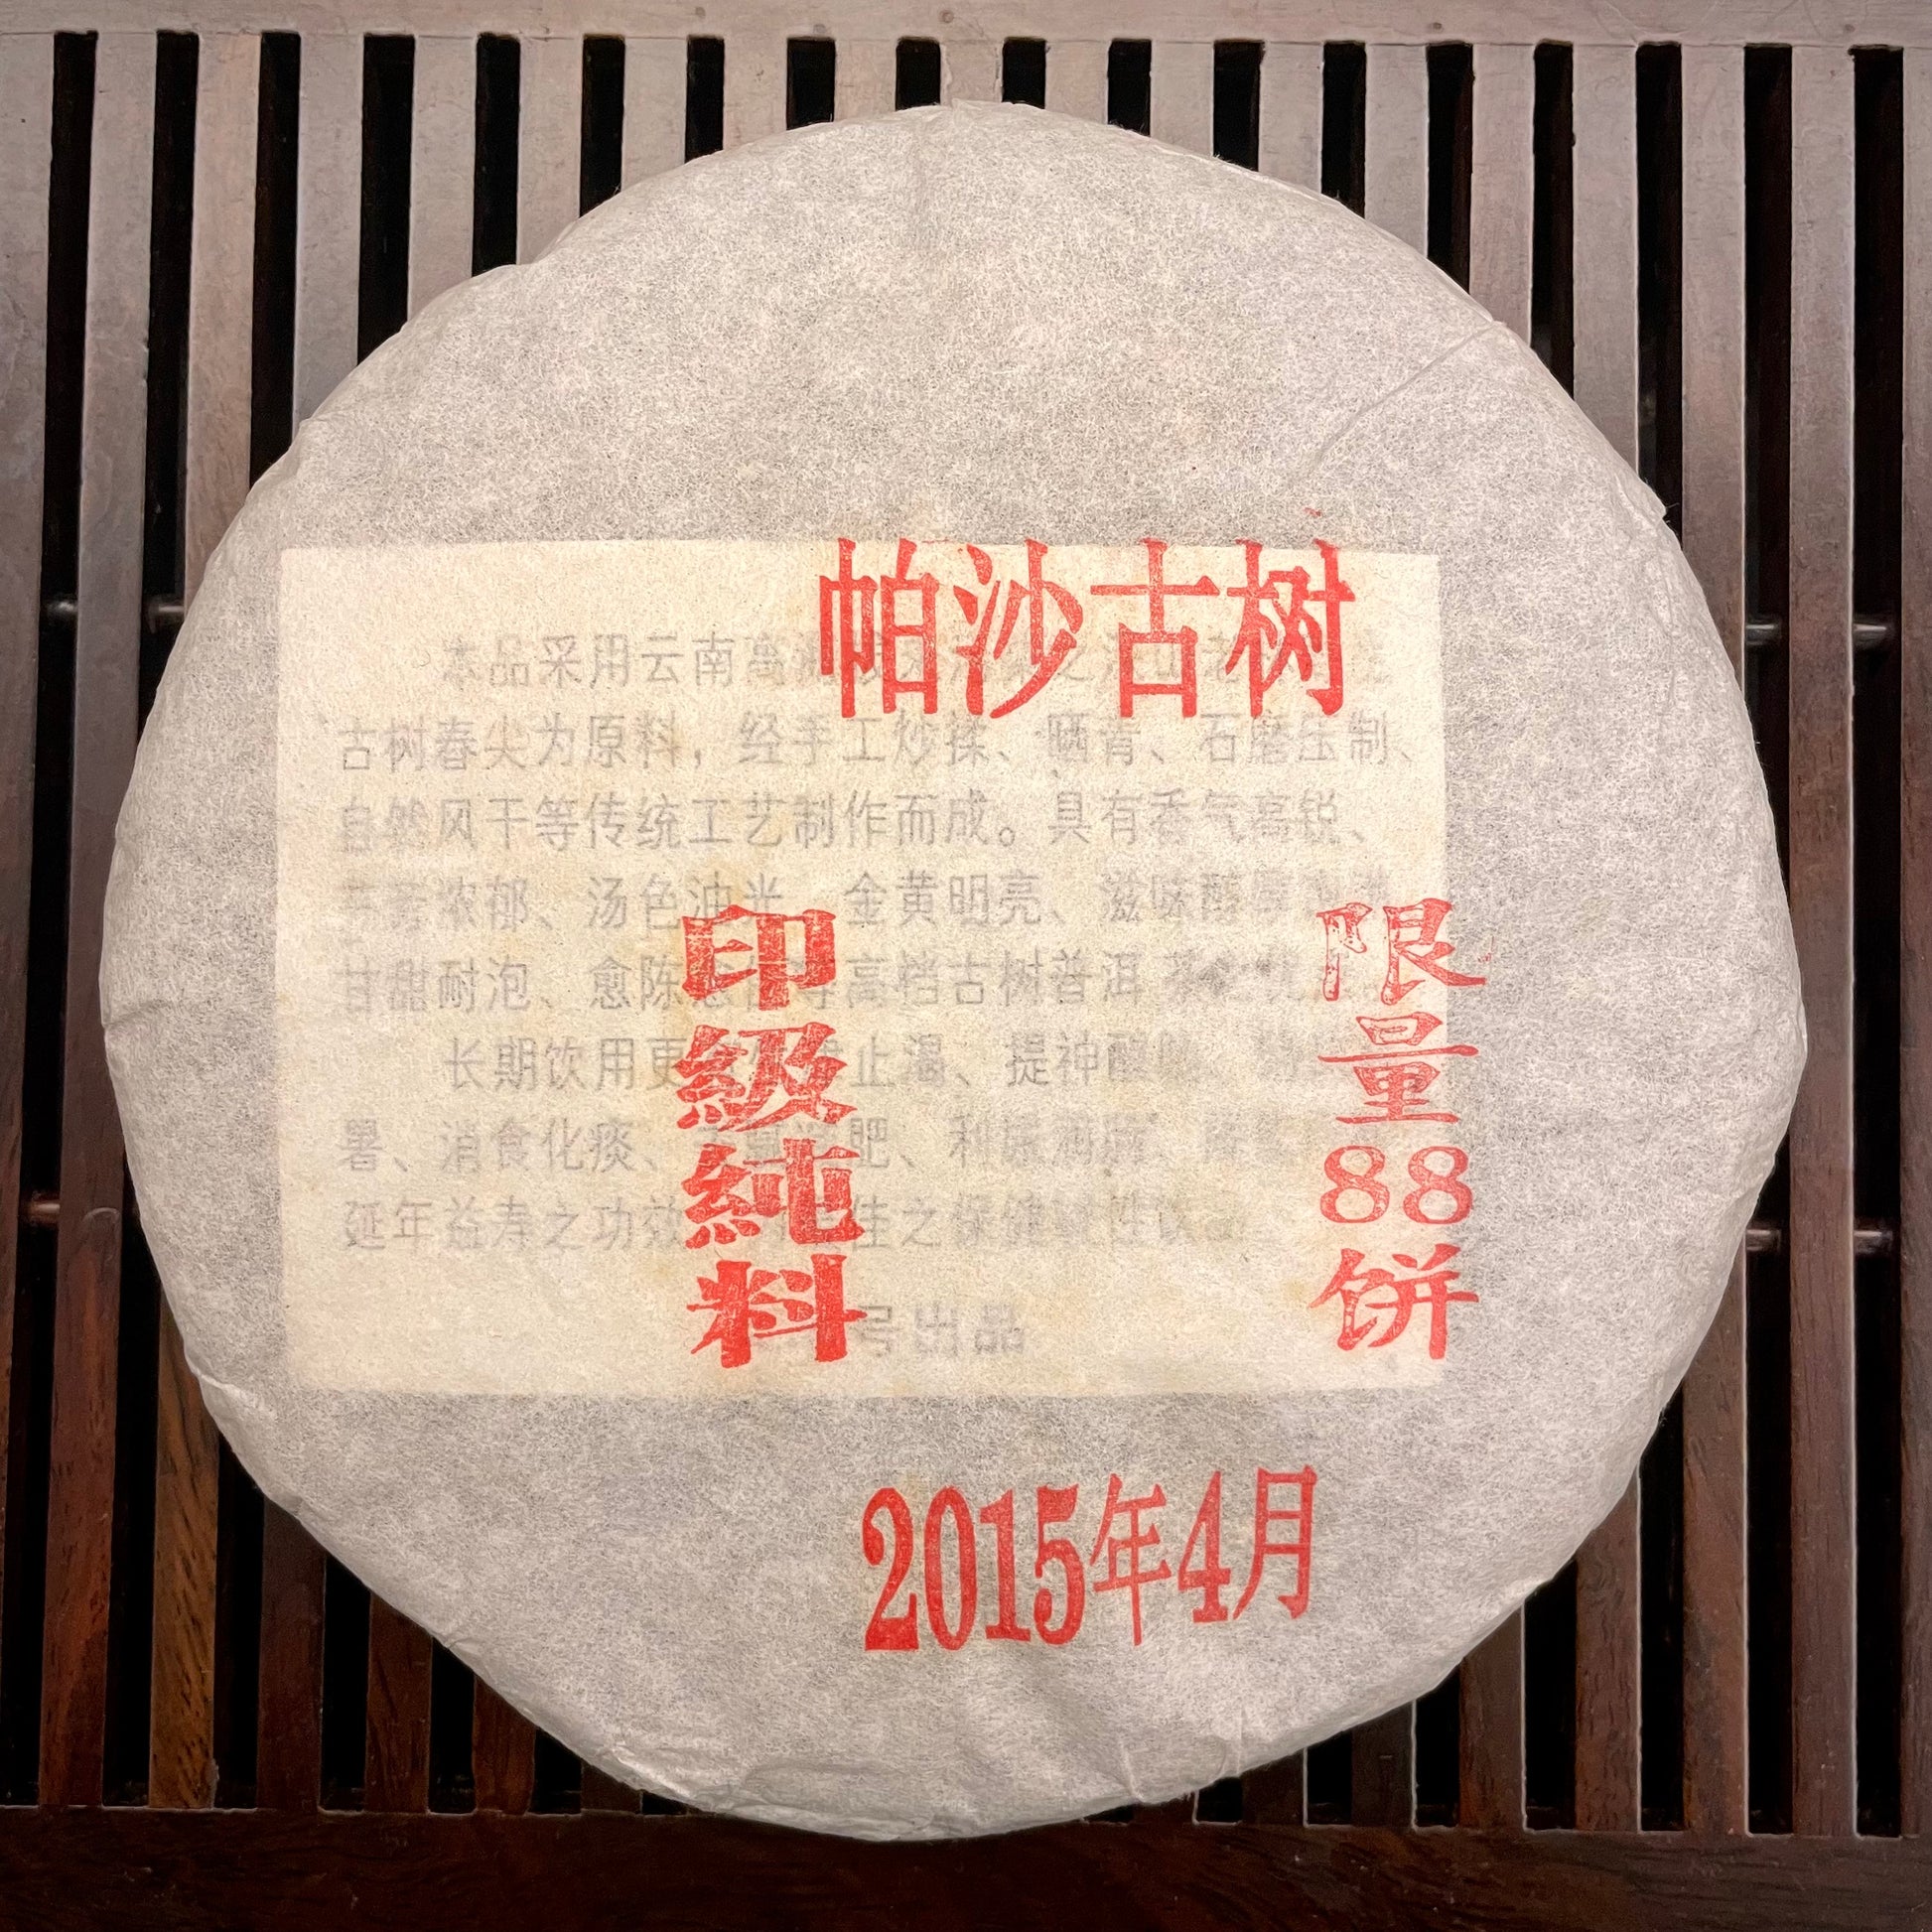 帕沙古树
本品采用云南高
古树春尖为原料，经手工炒揉、晒青、石磨压制、
自然风干等传统工艺制作而成。具有香气高锐、
浓郁、汤色油光、金黄明亮、滋味醇
甘甜耐泡、愈陈愈 高档古树普洱
长期饮用更 止渴、提神醒
暑、消食化痰、 肥、利
延年益寿之功效 佳之保健
号出品
印級純料
限量88饼
2015年4月